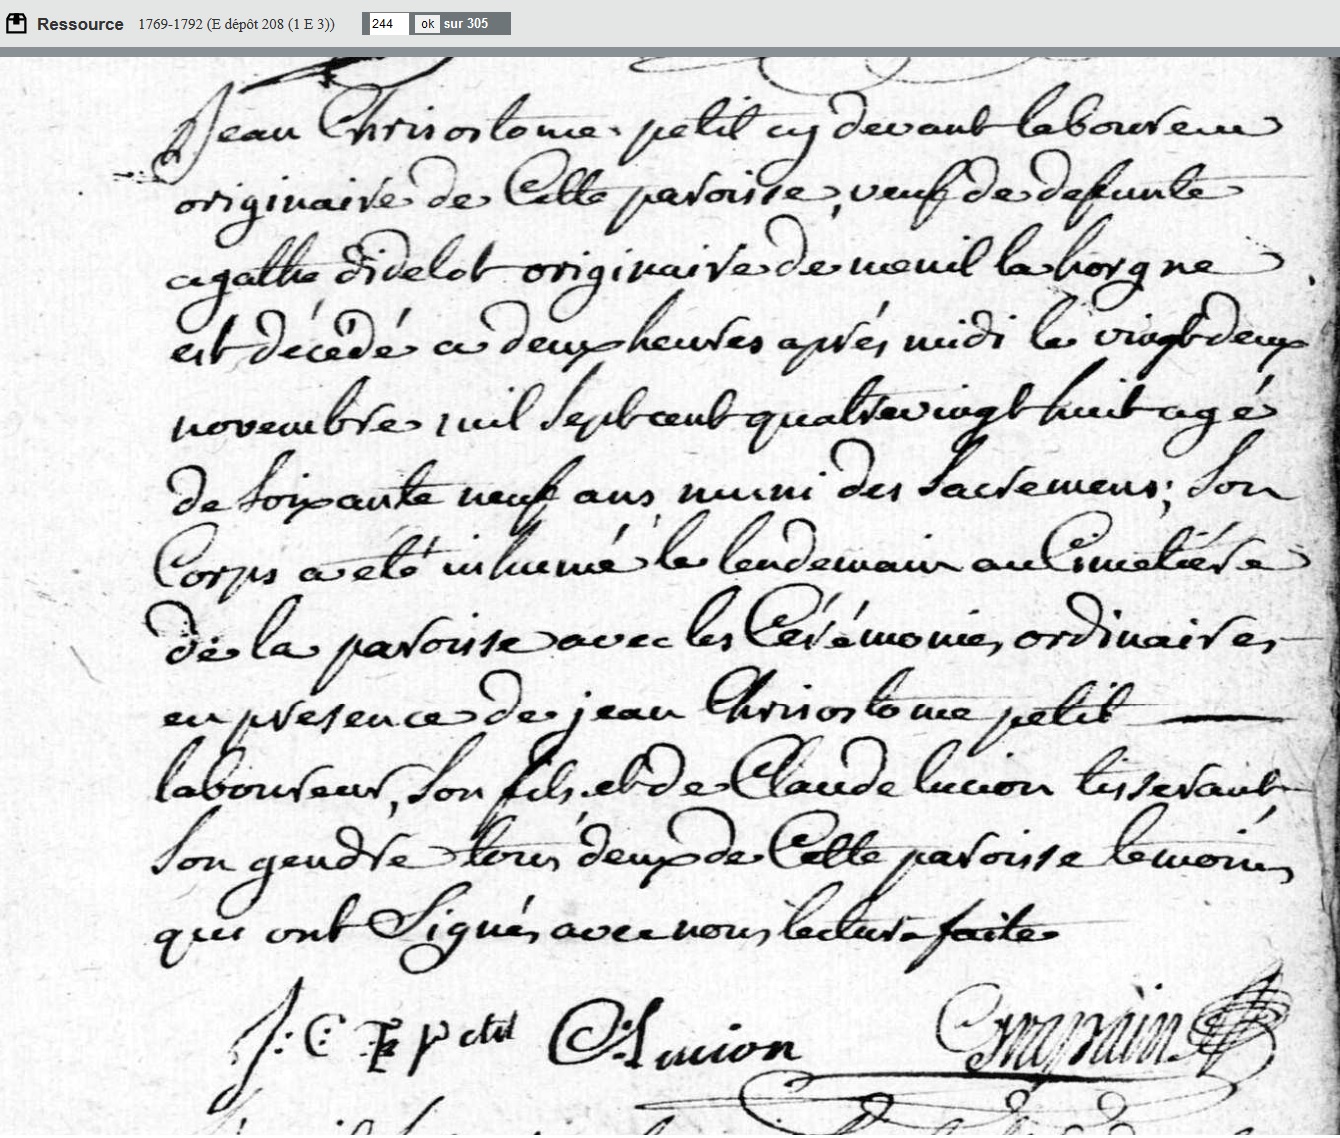 Ressource 1769-1792 (E dépôt 208 (1 E 3)) 244 ok sur 305
Jean Chrisostome petit cy devant laboureur
originaire de Cette paroisse, veuf de defunte
agathe didelot originaire de menil la horgne
est décédé a deux heures aprés midi le vingt deux
novembre mil sept cent quatrevingt huit agé
de soixante neuf ans muni des sacremens; son
Corps a eté inhumé le lendemain au Cimetiére
de la paroisse avec les Cérémonies ordinaires
en presence de jean Chrisostome petit
laboureur, son fils, et de Claude lucion tisserant
son gendre tous deux de Cette paroisse temoins
qui ont signés avec nous lecture faite
J. C petit C lucion